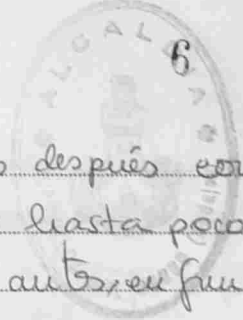 ALCALD
6
después con
hasta poco
antes, en fun